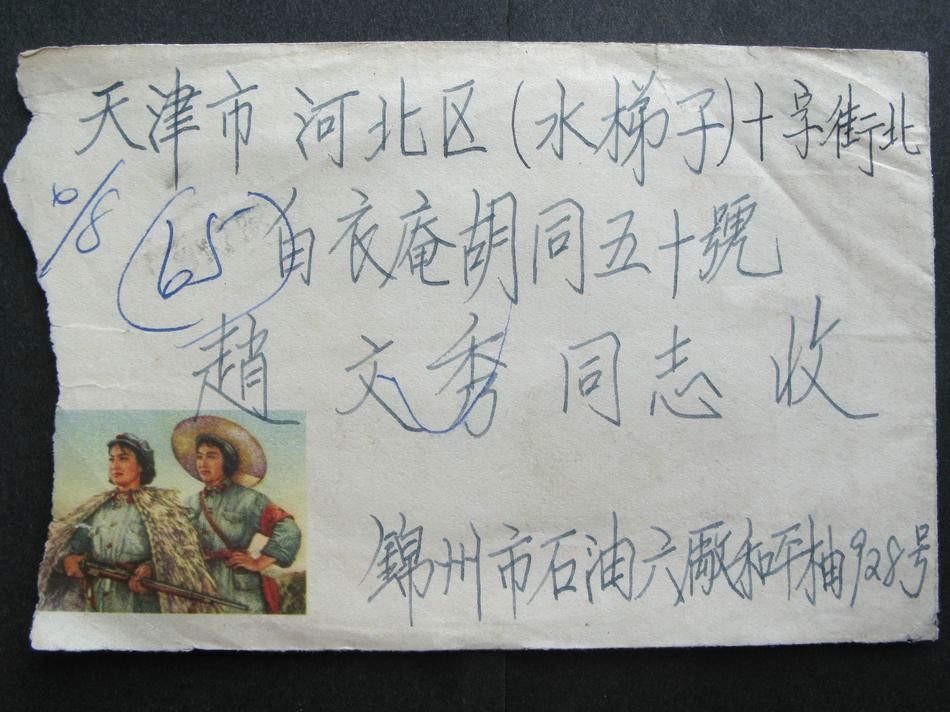 天津市 河北区(水梯子)十字街北
0/8 (65) 白衣庵胡同五十號
趙 文秀 同志 收
錦州市石油六厰和平楼928号